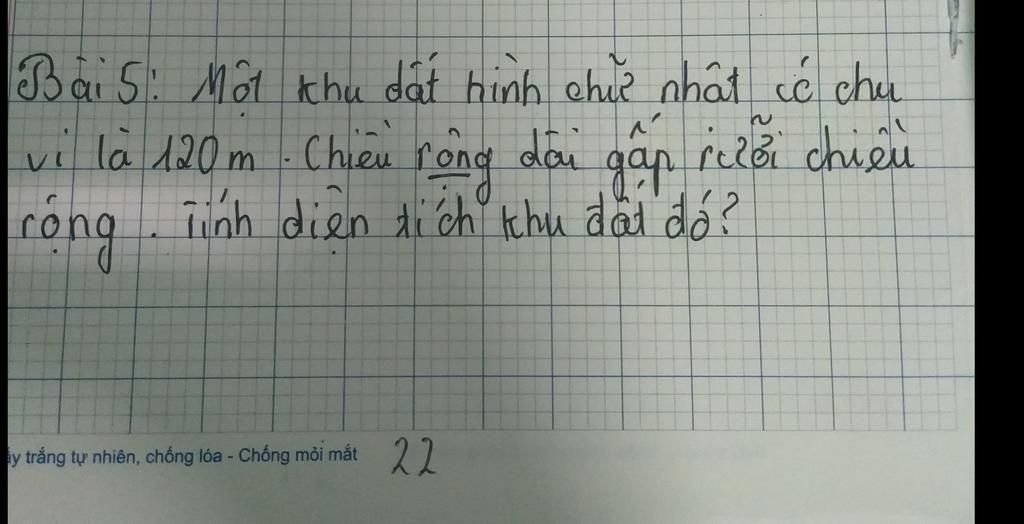 Bài 5: Một khu đất hình chữ nhật có chu
vi là 120m. Chiều rộng dài gấp rưỡi chiều
rộng. Tính diện tích khu đất đó?
ấy trắng tự nhiên, chống lóa - Chống mỏi mắt 22